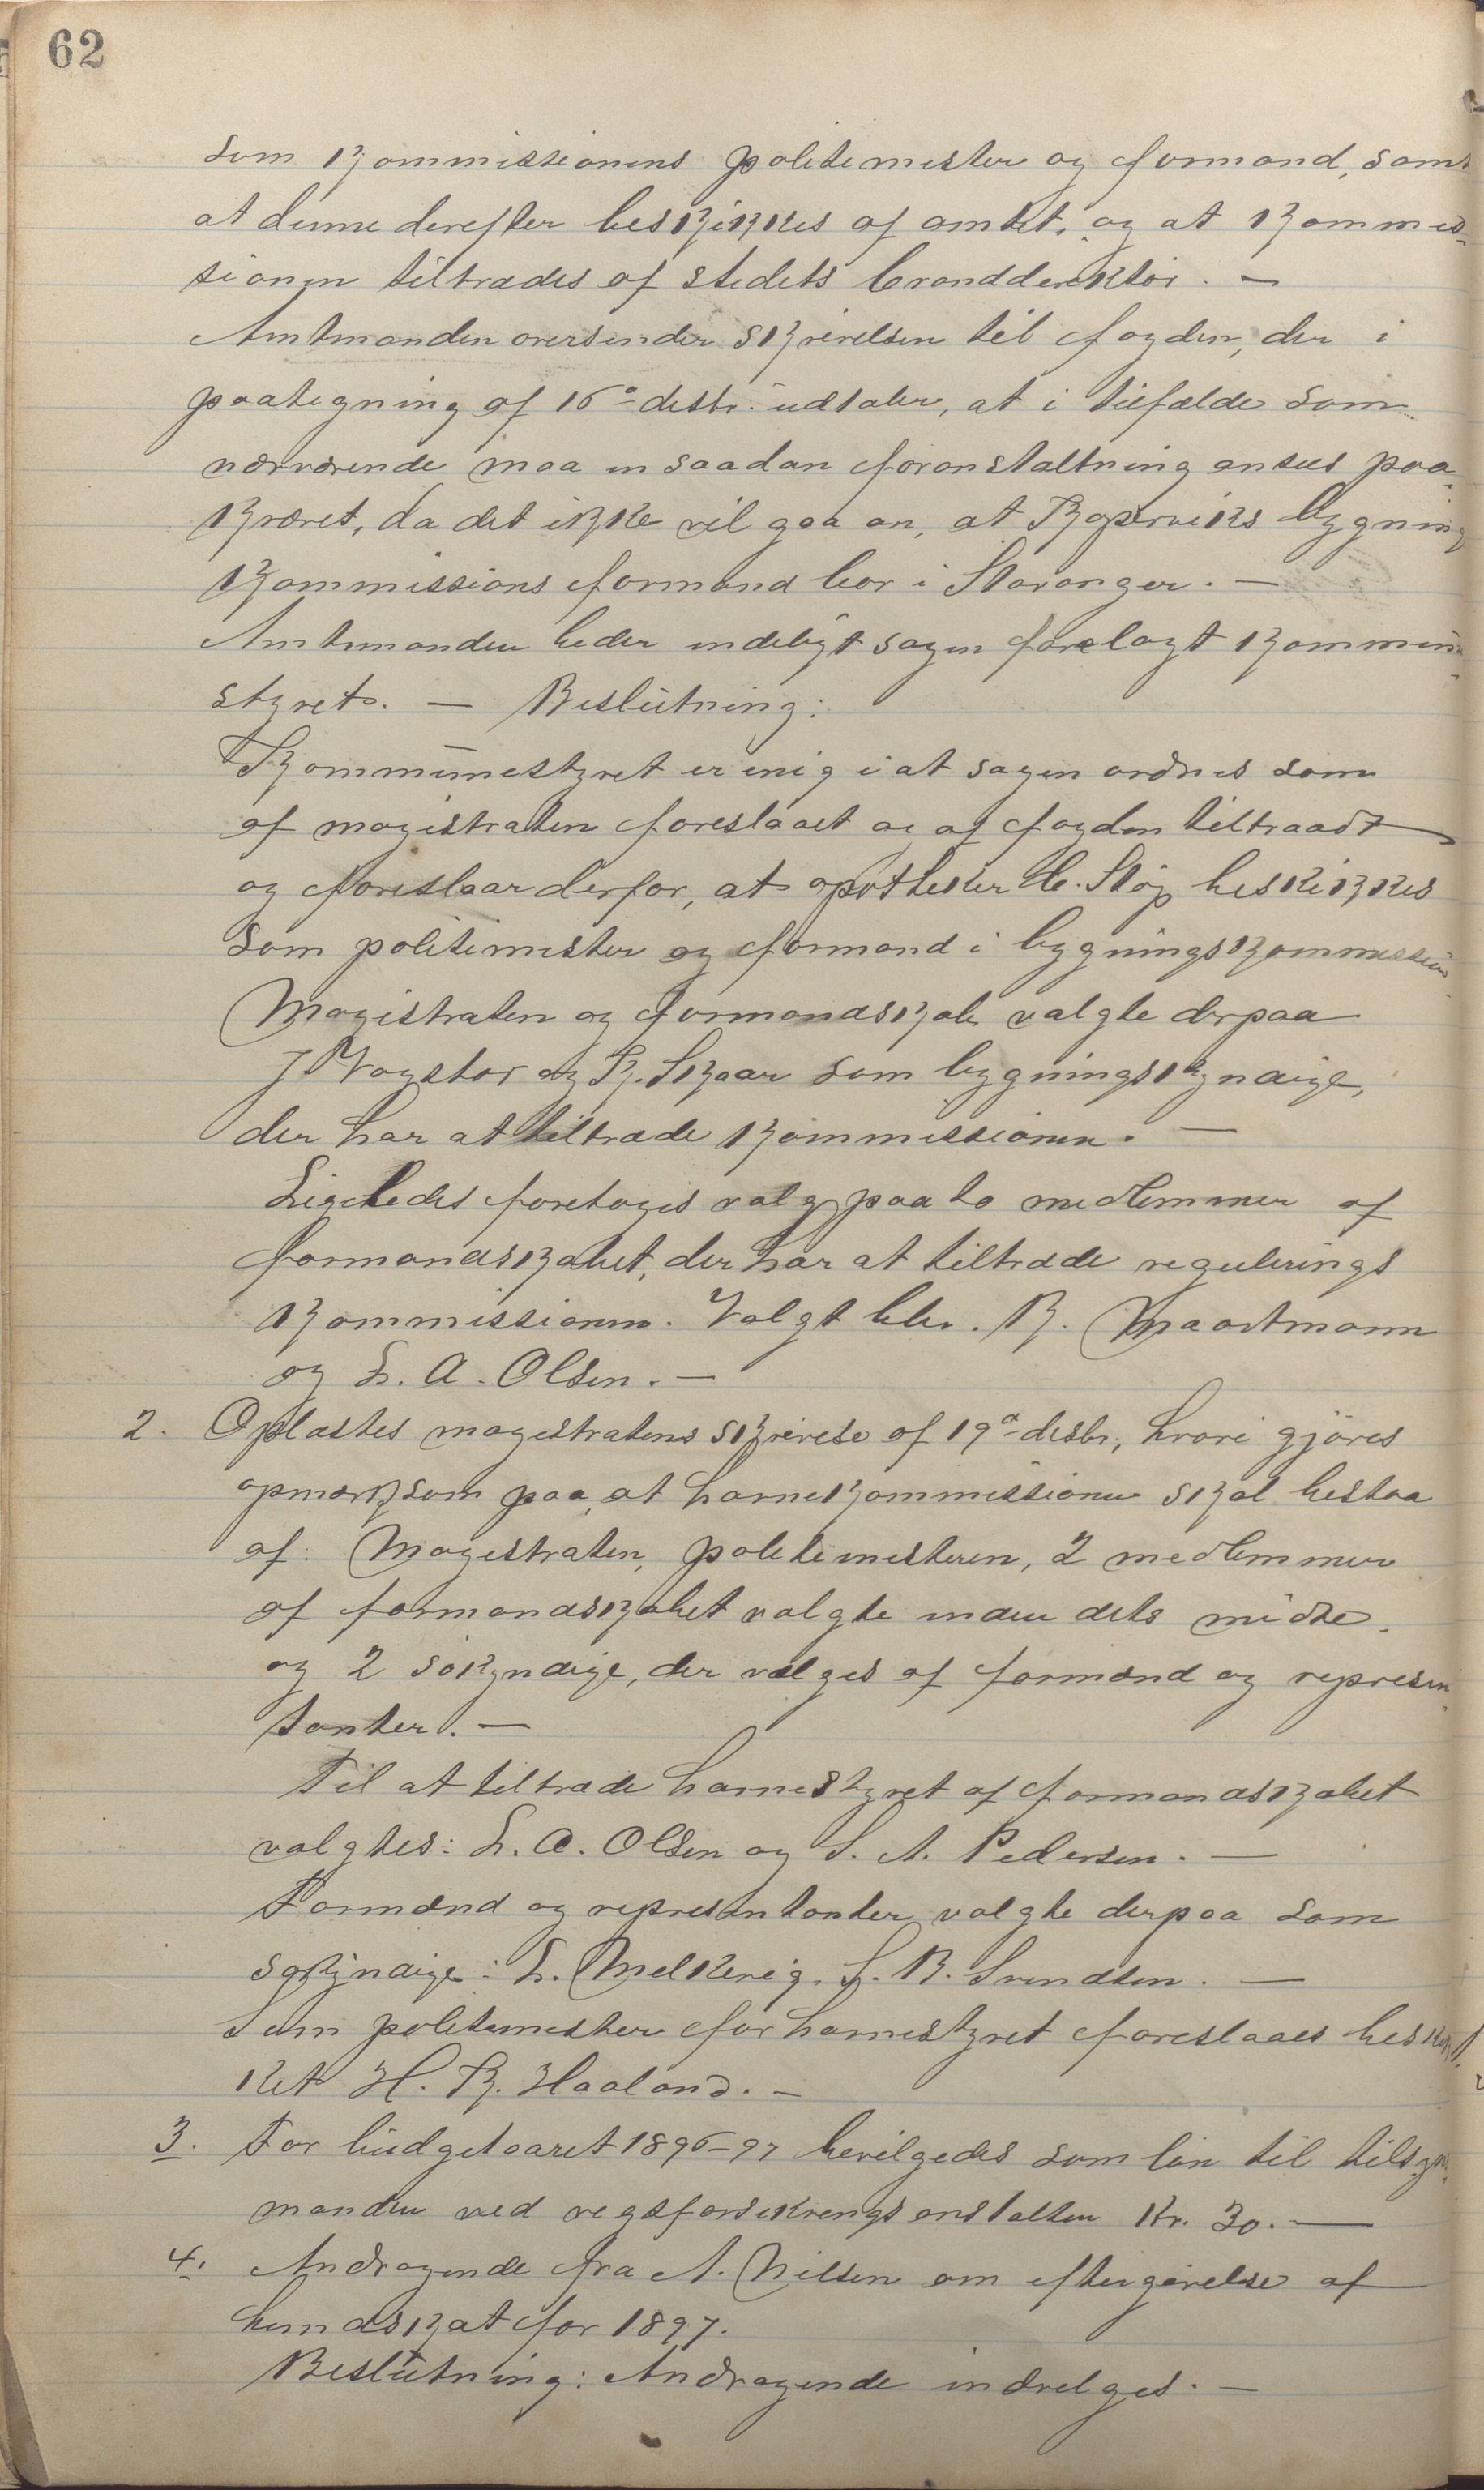 62
som kommissionens politimester og formand, samt
at denne derefter beskikkes af amtet, og at kommis-
sionen tiltrædes af stedets branddirektør. —
Amtmanden oversender skrivelsen til fogden, der i
paategning af 16de dsbr. udtaler, at i tilfælde som
nærværende maa en saadan foranstaltning ansees paa-
krævet, da det ikke vil gaa an, at Kopperviks bygning
kommissions formand bor i Stavanger. —
Amtmanden beder endeligt sagen forelagt kommune-
styret. — Beslutning:
Kommunestyret er enig i at sagen ordnes som
af magistraten foreslaaet og af fogden tiltraadt
og foreslaar derfor, at apotheker Chr. Støp beskikkes
som politimester og formand i bygningskommission
Magistraten og formandskab valgte derpaa
J Vagstøl og K. Skaar som bygningskyndige,
der har at tiltræde kommissionen. —
Ligeledes foretoges valg paa to medlemmer af
formandskabet, der har at tiltræde regulerings
kommissionen. Valgt blev. B. Maartmann
og L. A. Olsen. —
2. Oplæstes magistratens skrivelse af 19de dsbr., hvori gjøres
opmærksom paa, at havnekommissionen skal bestaa
af: Magistraten, politimesteren, 2 medlemmer
af formandskabet valgte inden dets midte,
og 2 søkyndige, der vælges af formænd og represen-
tanter. —
Til at tiltræde havnestyret af formandskabet
valgtes: L. A. Olsen og S. A. Pedersen. —
Formænd og representanter valgte derpaa som
søkyndige: L. Melkevig, S. B. Svendsen. —
Som politimester for havnestyret foreslaaes beskik-
ket H. K. Haaland. —
3. For budgetaaret 1896–97 bevilgedes som løn til tilsyns-
manden ved vegtforsikringsanstalten Kr. 30. —
4. Andragende fra A. Nilsen om eftergivelse af
hundskat for 1897.
Beslutning: Andragende indvilges. —